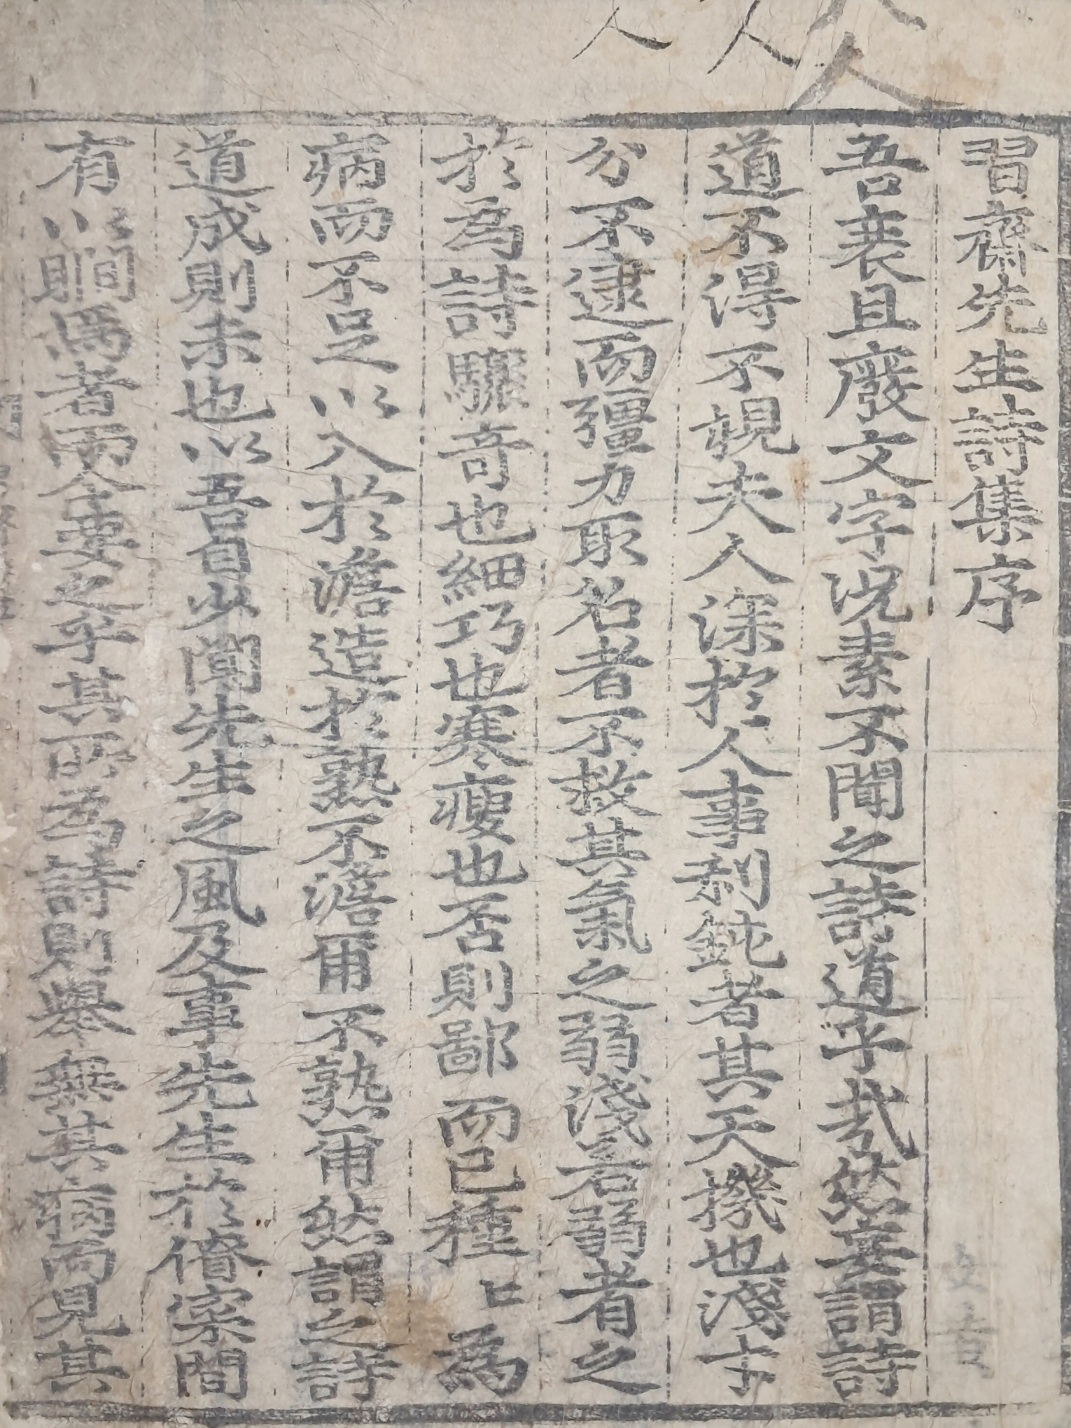 習齋先生詩集序
吾衰且廢文字况素不聞之詩道乎哉然妄謂詩
道不得不覘夫人深於人事利鈍者其天機也淺才
分不逮而彊力取名者不救其氣之弱淺若弱者之
於為詩驟奇也細巧也寒瘦也否則鄙而已種〻為
病而不足以入於澹造於熟不澹甫不熟甫然謂之詩
道成則未也以吾自少聞先生之風及事先生於僚寀間
有以瞷焉者而今要之乎其所為詩則舉無其病而見其